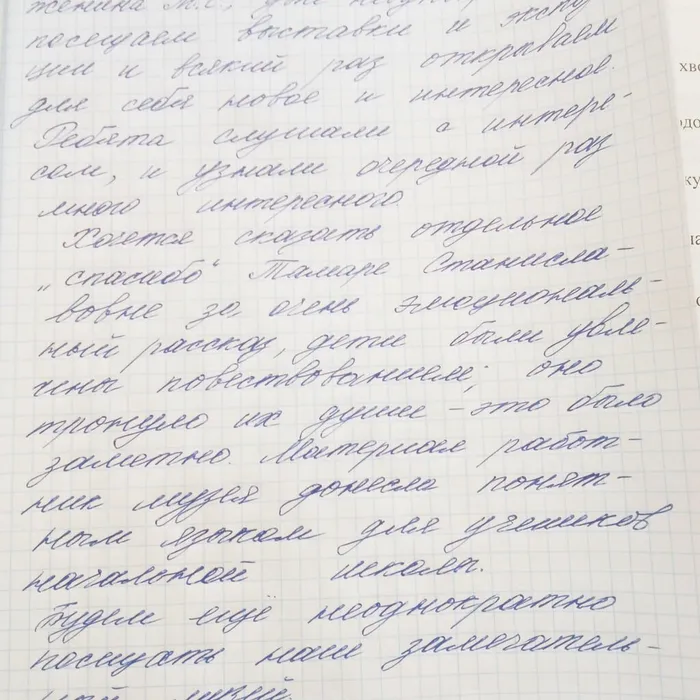 посещаем выставки и экспо
ции и всякий раз открываем
для себя новое и интересное.
Ребята слушали с интере-
сом, и узнали очередной раз
много интересного.
Хочется сказать отдельное
„спасибо" Тамаре Станисла-
вовне за очень эмоциональ-
ный рассказ, дети были увле-
чены повествованием; оно
тронуло их души - это было
заметно. Материал работ-
ник музея донесла понят-
ным языком для учеников
начальной школы.
Будем ещё неоднократно
посещать наш замечатель-
ный музей.
хво
ку